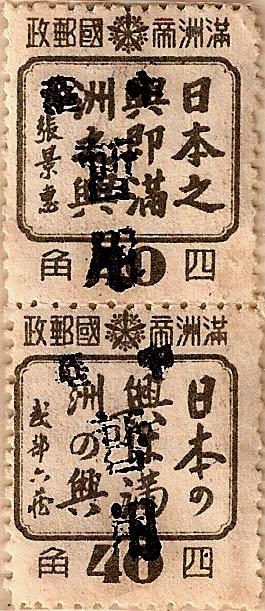 滿洲帝國郵政
日本之
興即滿
洲之興
張景惠
四40角
暫用
滿洲帝國郵政
日本の
興 滿
洲の興
武部六藏
四40角
暫用